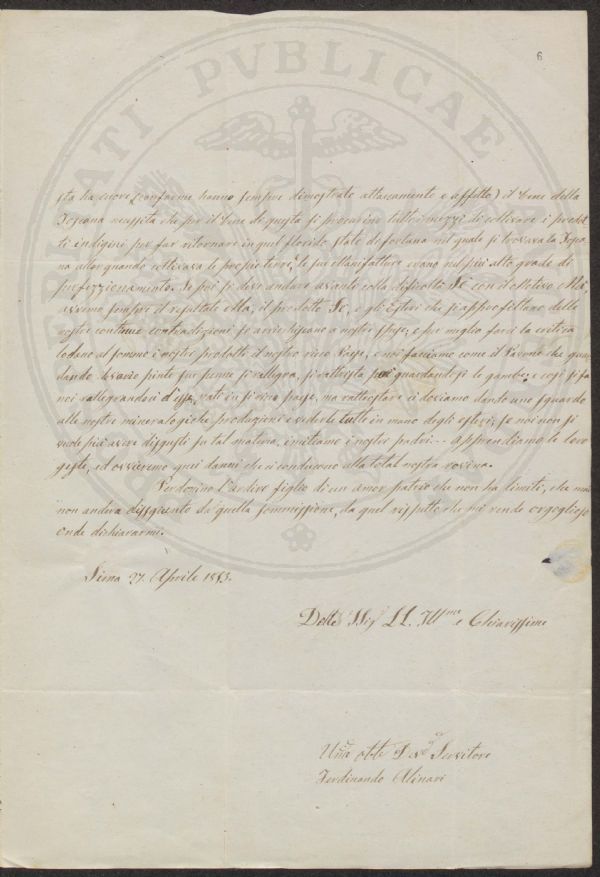 6
sta ha cuore (conforme hanno sempre dimostrato attaccamento e affetto) il bene della
Toscana necessita che per il bene di questa si procurino tutti i mezzi di coltivare i prodot-
ti indigini per far ritornare in quel florido stato di fortuna nel quale si trovava la Tosca-
na allor quando coltivava le proprie terre, e le sue Manifatture erano nel più alto grado di
prefezzionamento. Se poi si deve andare avanti colla disfratta Se con d'ottativo Ma,
avremo sempre il resultato Ma, il prodotto Se, e gli Esteri che si approfittano delle
nostre continue contradizioni si arricchiscano a nostre spese, e per meglio farci la critica
lodano al sommo i nostri prodotti il nostro ricco Paese, e noi facciamo come il Pavone che guar-
dando le vario pinte sue penne si rallegra, si rattrista poi guardandosi le gambe; e così si fa
noi rallegrandosi d'esser nati in sì ricco paese, ma rattristare ci doviamo dando uno sguardo
alle nostre mineralogiche produzioni e vederle tutte in mano degli esteri; se noi non si
vuole più avere disgusti su tal materia, imitiamo i nostri padri... apprendiamo le loro
geste, ed ovvieremo quei danni che ci condurrono alla total nostra rovina.
Perdonino l'ardire figlio di un amor patrio che non ha limiti, che mai
non andera disgiunto da quella sommissione, da quel rispetto che mi rende orgoglioso
onde dichiararmi.
Siena 27. Aprile 1853.
Delle Sig LL. Ill.me e Chiarissime
Um.o obb. Dev.o Servitore
Ferdinando Alinari
PUBLICAE